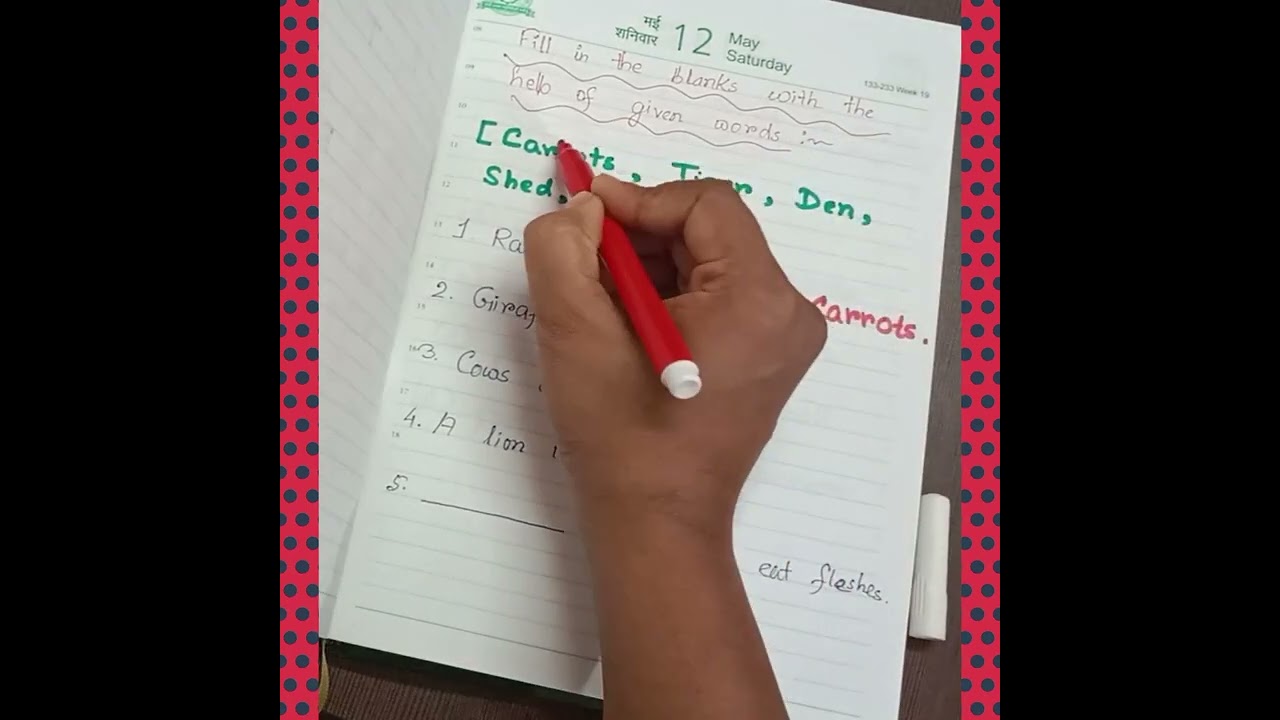 मई
शनिवार 12 May
Saturday
133-233 Week 19
Fill in the blanks with the
help of given words :~
[Carrots, Tiger, Den,
Shed,
1
Carrots.
2.
3. Cows
4. A lion
5. ________
eat fleshes.